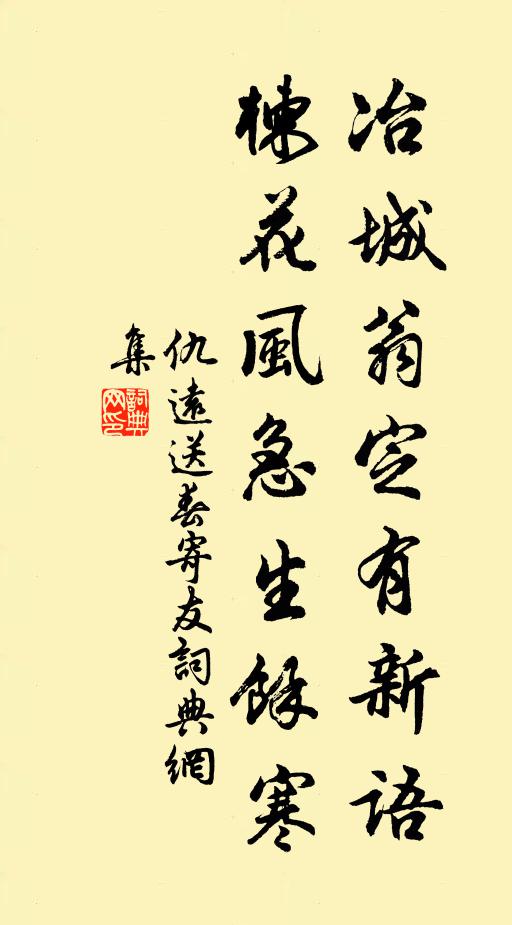 冶城翁定有新語
楝花風急生餘寒
仇遠送春寄友詞典網
集
詞典
网印